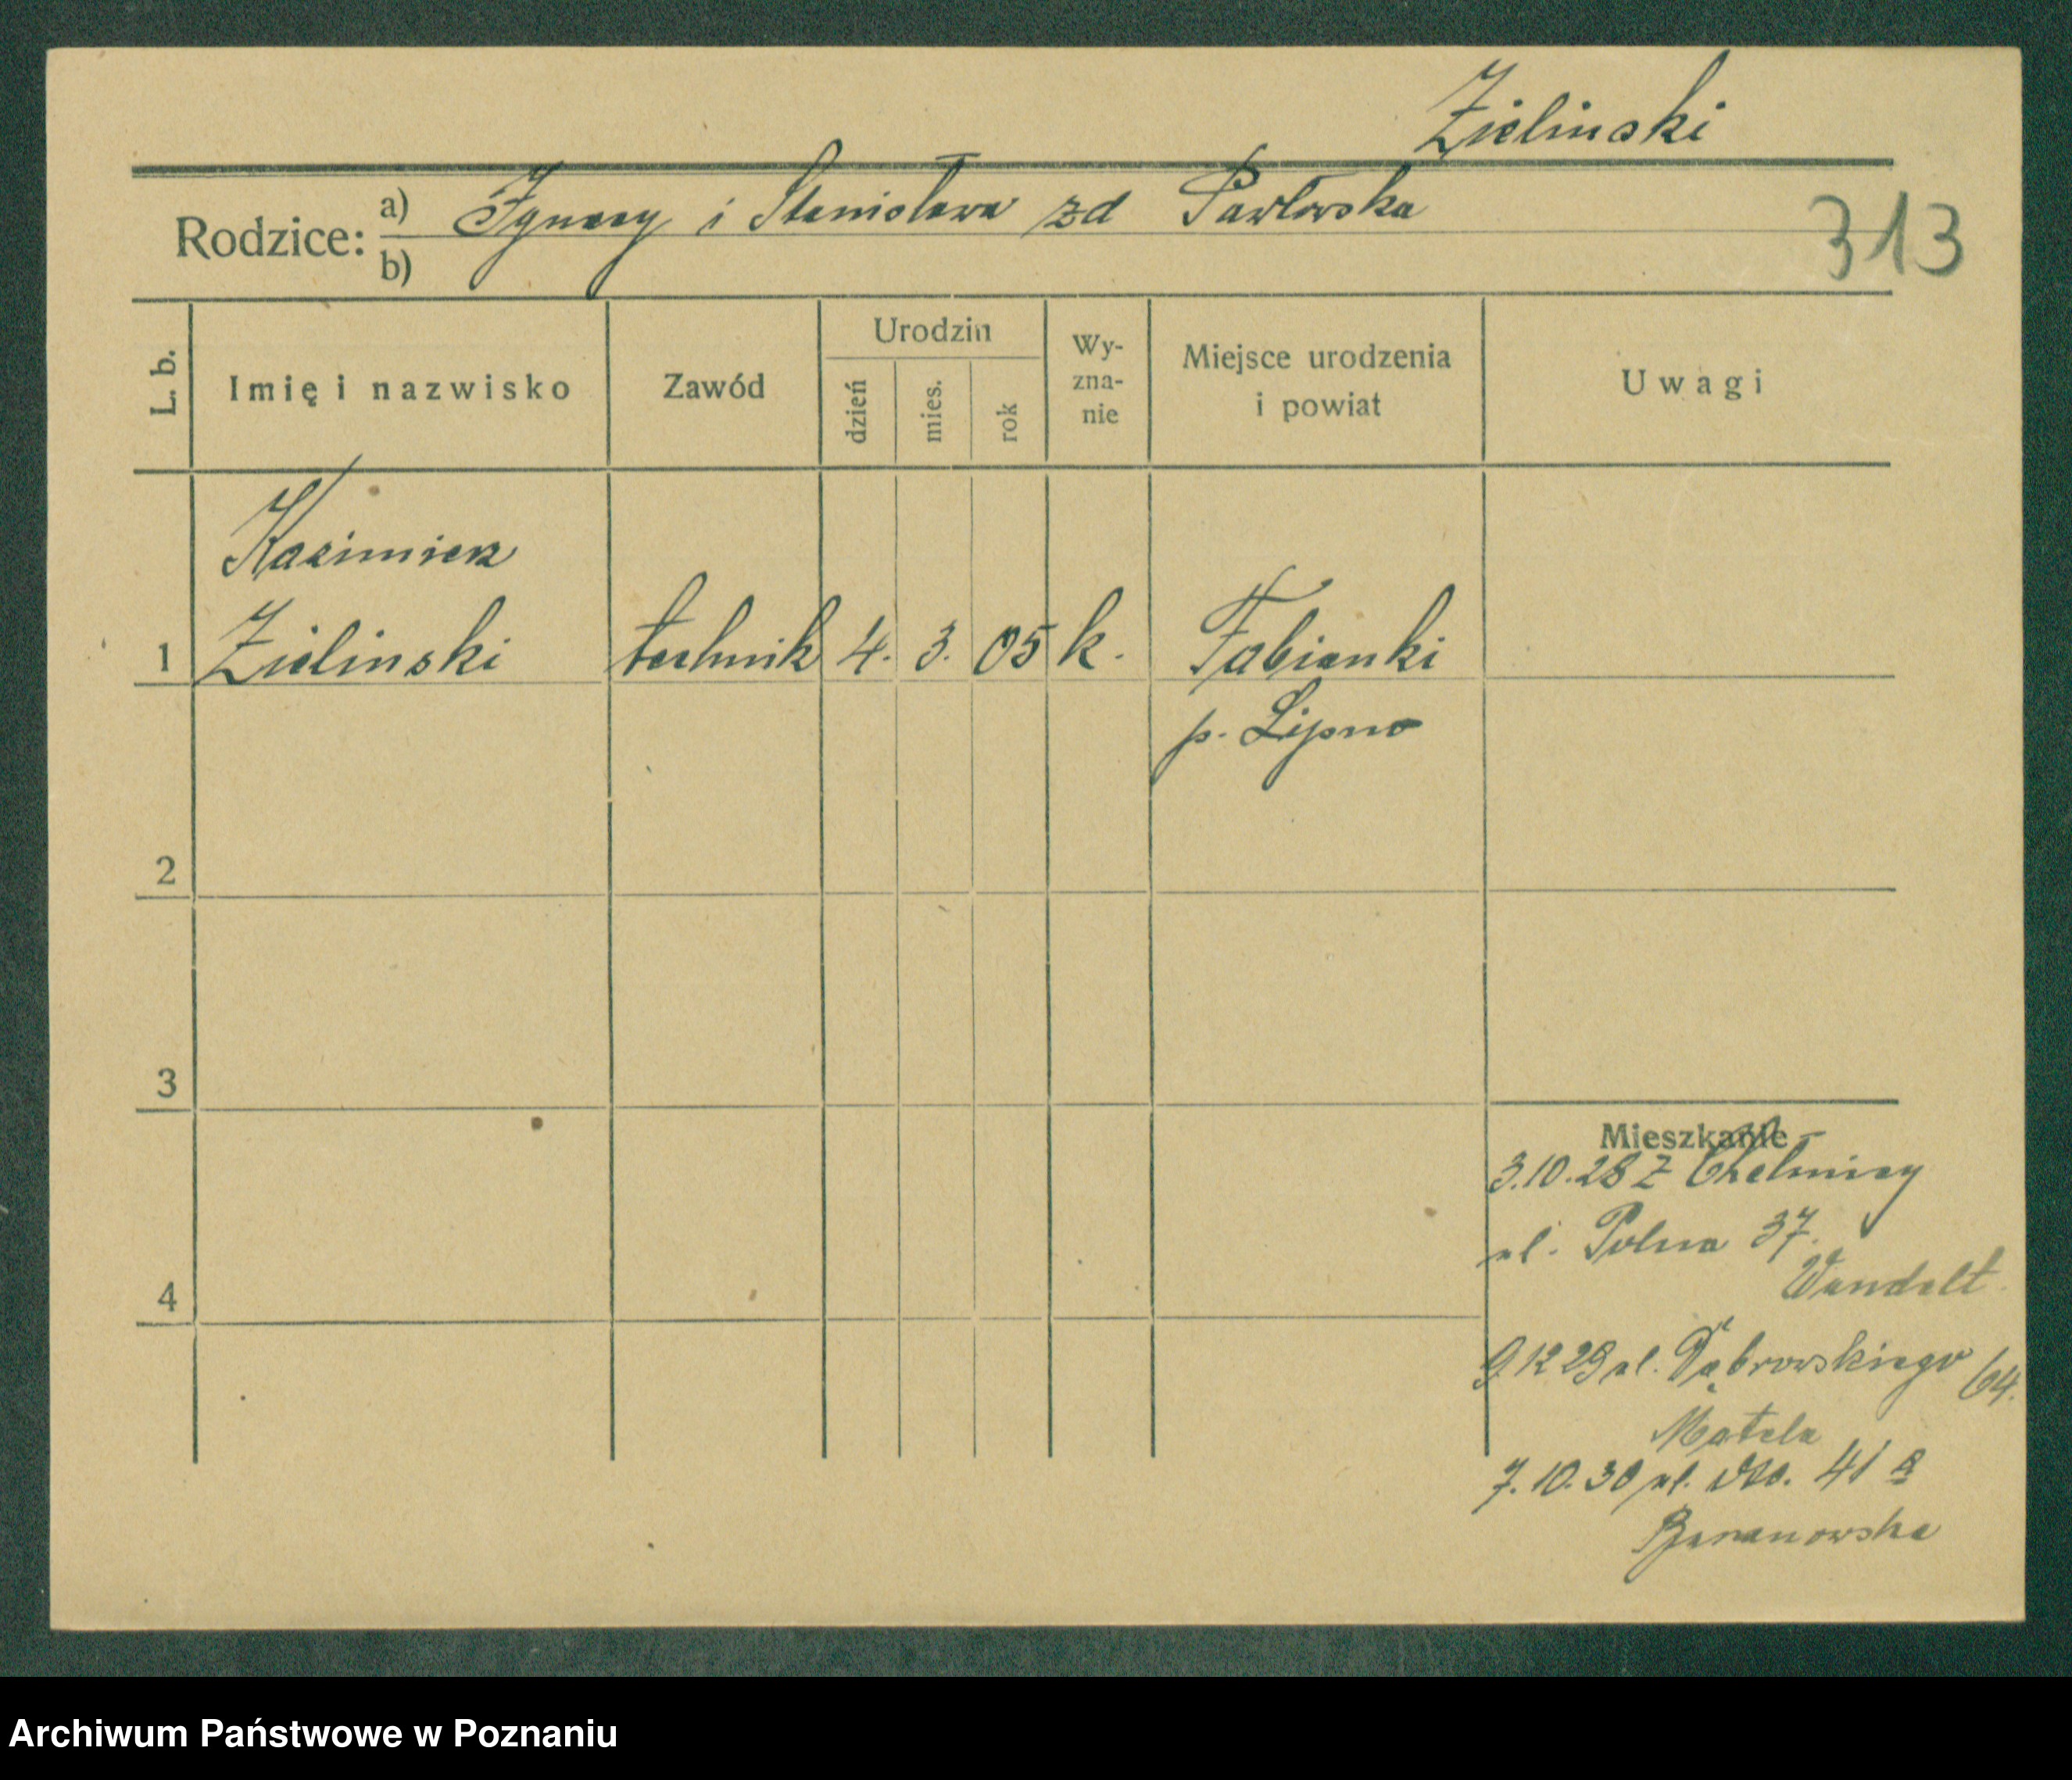 Zielinski
Rodzice: a) Ignacy i Stanisława zd Pawłowska
b)
313
L. b.
Imię i nazwisko
Zawód
Urodzin
dzień
mies.
rok
Wy-
zna-
nie
Miejsce urodzenia
i powiat
Uwagi
Kazimierz
1 Zielinski technik 4. 3. 05 k. Fabianki
p. Lipno
2
3
4
Mieszkanie
3.10.28 z Chełmicy
ul. Polna 37.
Wandelt
9.12 29 ul. Dąbrowskiego 64.
Matela
7.10.30 ul. 41 a
Baranowska
Archiwum Państwowe w Poznaniu